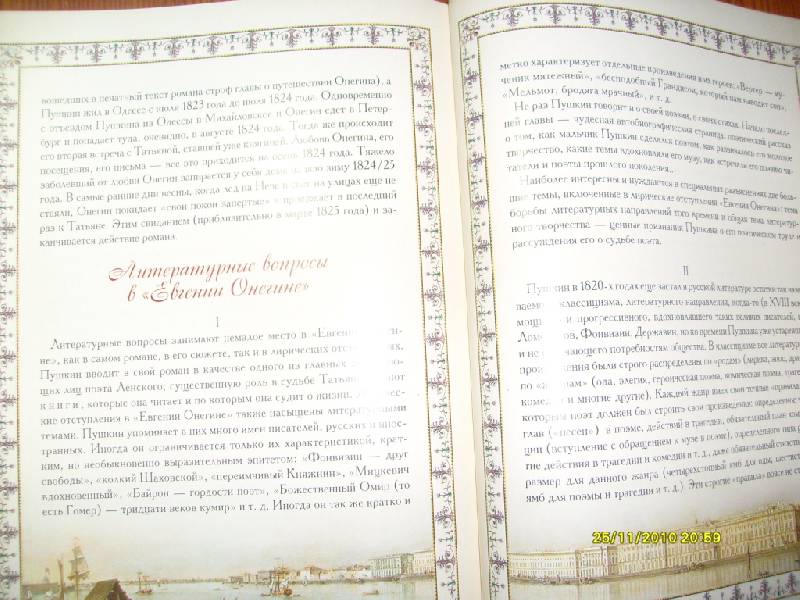 вошедших в печатный текст романа строф главы о путешествии Онегина), а
Пушкин жил в Одессе с июля 1823 года до июля 1824 года. Одновременно
с отъездом Пушкина из Одессы в Михайловское и Онегин едет в Петер-
бург и попадает туда, очевидно, в августе 1824 года. Тогда же происходит
его вторая встреча с Татьяной, ставшей уже княгиней. Любовь Онегина, его
посещения, его письма — все это приходится на осень 1824 года. Тяжело
заболевший от любви Онегин запирается у себя дома на всю зиму 1824/25
года. В самые ранние дни весны, когда лед на Неве и снег на улицах еще не
стаяли, Онегин покидает «свои покои запертые» и приезжает в последний
раз к Татьяне. Этим свиданием (приблизительно в марте 1825 года) и за-
канчивается действие романа.
Литературные вопросы
в «Евгении Онегине»
I
Литературные вопросы занимают немалое место в «Евгении Онеги-
не», как в самом романе, в его сюжете, так и в лирических отступлениях.
Пушкин вводит в свой роман в качестве одного из главных
щих лиц поэта Ленского; существенную роль в судьбе Татьяны
книги, которые она читает и по которым она судит о жизни.
кие отступления в «Евгении Онегине» также насыщены литературными
темами. Пушкин упоминает в них много имен писателей, русских и иност-
ранных. Иногда он ограничивается только их характеристикой, крат-
ким, но необыкновенно выразительным эпитетом: «Фонвизин — друг
свободы», «колкий Шаховской», «переимчивый Княжнин», «Мицкевич
вдохновенный», «Байрон — гордости поэт», «Божественный Омир (то
есть Гомер) — тридцати веков кумир» и т. д. Иногда он так же кратко и
метко характеризует отдельные произведения или героев: «Вертер — му-
ченик мятежный», «бесподобный Грандисон, который нам наводит сон»,
«Мельмот, бродяга мрачный», и т. д.
Не раз Пушкин говорит и о своей поэзии, о своих стихах. Начало послед-
ней главы — чудесная автобиографическая страница, поэтический рассказ
о том, как мальчик Пушкин сделался поэтом, как развивалось его молодое
творчество, какие темы вдохновляли его музу, как встречали его поэзию чи-
татели и поэты прошлого поколения...
Наиболее интересна и нуждается в специальных разъяснениях две боль-
шие темы, включенные в лирические отступления «Евгения Онегина»: тема
борьбы литературных направлений того времени и общая тема литератур-
ного творчества — ценные показания Пушкина о его поэтическом труде и
рассуждения его о судьбе поэта.
II
Пушкин в 1820-х годах еще застал в русской литературе остатки так называ-
емого классицизма, литературного направления, когда-то (в XVIII веке)
и прогрессивного, вдохновлявшего таких великих писателей,
Фонвизин, Державин, но ко времени Пушкина уже
и не потребностям общества. В классицизме все литературные
были строго распределены по «родам» (лирика, эпос, драма)
по (ода, элегия, героическая поэма, комическая поэма,
и многие другие). Каждый жанр имел свои точные «правила»,
которым поэт должен был строить свое произведение: определенное
(«песен») в поэме, действий в трагедии, обязательный план
ции (вступление с обращением к музе в поэме), определенного типа
ние действия в трагедии и комедии и т. д., даже обязательный
размер для данного жанра (четырехстопный ямб для оды, шестистопный
ямб для поэмы и трагедии и т. д.) Эти строгие «правила»
25/11/2010 20:59